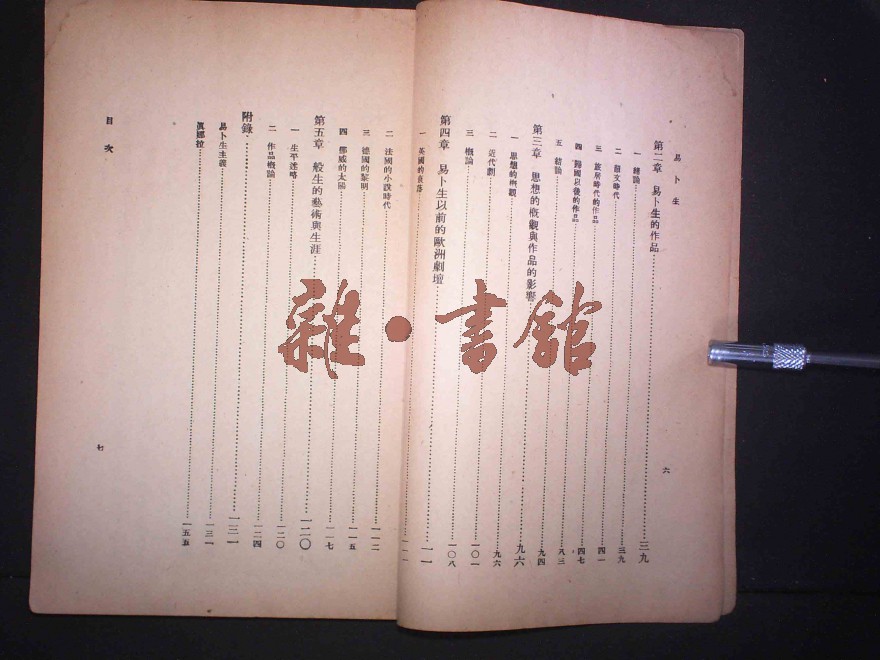 易卜生
第二章 易卜生的作品……三九
一 緒論……三九
二 韻文時代……三九
三 旅居時代的作品……四一
四 歸國以後的作品……四七
五 結論……八三
第三章 思想的概觀與作品的影響……九四
一 思想的概觀……九六
二 近代劇……九六
三 概論……一〇一
第四章 易卜生以前的歐洲劇壇……一〇八
一 英國的衰落……一一一
二 法國的小說時代……一一二
三 德國的黎明……一一五
四 挪威的太陽……一一七
第五章 般生的藝術與生涯……一二〇
一 生平述略……一二〇
二 作品概論……一二四
附錄……一三一
易卜生主義……一三一
娜拉……一五五
目次
六
七
雜·書館